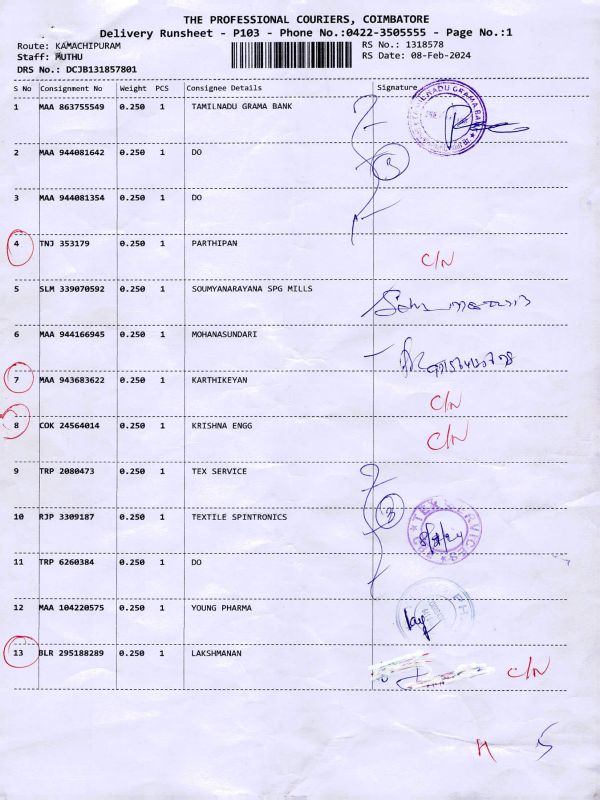 THE PROFESSIONAL COURIERS, COIMBATORE
Delivery Runsheet - P103 - Phone No.:0422-3505555 - Page No.:1
Route: KAMACHIPURAM RS No.: 1318578
Staff: MUTHU RS Date: 08-Feb-2024
DRS No.: DCJB131857801
S No Consignment No Weight PCS Consignee Details Signature
1 MAA 863755549 0.250 1 TAMILNADU GRAMA BANK
2 MAA 944081642 0.250 1 DO
3
3 MAA 944081354 0.250 1 DO
4 TNJ 353179 0.250 1 PARTHIPAN
C/N
5 SLM 339070592 0.250 1 SOUMYANARAYANA SPG MILLS
6 MAA 944166945 0.250 1 MOHANASUNDARI
7 MAA 943683622 0.250 1 KARTHIKEYAN
C/N
8 COK 24564014 0.250 1 KRISHNA ENGG
C/N
9 TRP 2080473 0.250 1 TEX SERVICE
10 RJP 3309187 0.250 1 TEXTILE SPINTRONICS
3
TEX SERVICES
11 TRP 6260384 0.250 1 DO
12 MAA 104220575 0.250 1 YOUNG PHARMA
13 BLR 295188289 0.250 1 LAKSHMANAN
C/N